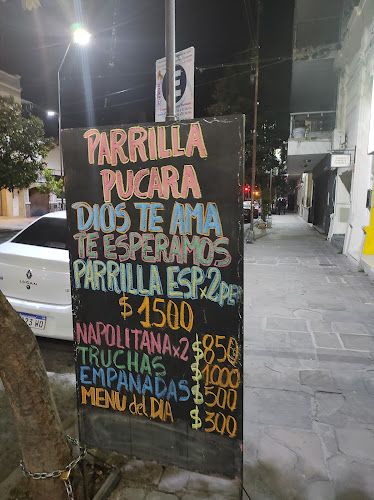 E
PARRILLA
PUCARA
DIOS TE AMA
TE ESPERAMOS
PARRILLA ESP x 2 PER
$1500
NAPOLITANA x 2 $850
TRUCHAS $1000
EMPANADAS $500
MENU del DIA $300
LOGAN